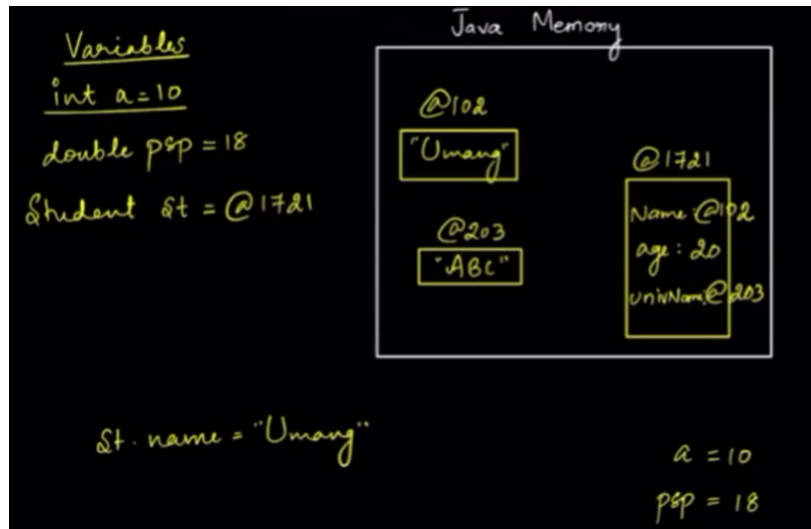 Variables
int a=10
double psp = 18
Student st = @1721
Java Memory
@102
"Umang"
@203
"ABC"
@1721
Name:@102
age: 20
univName:@203
st. name = "Umang"
a = 10
psp = 18